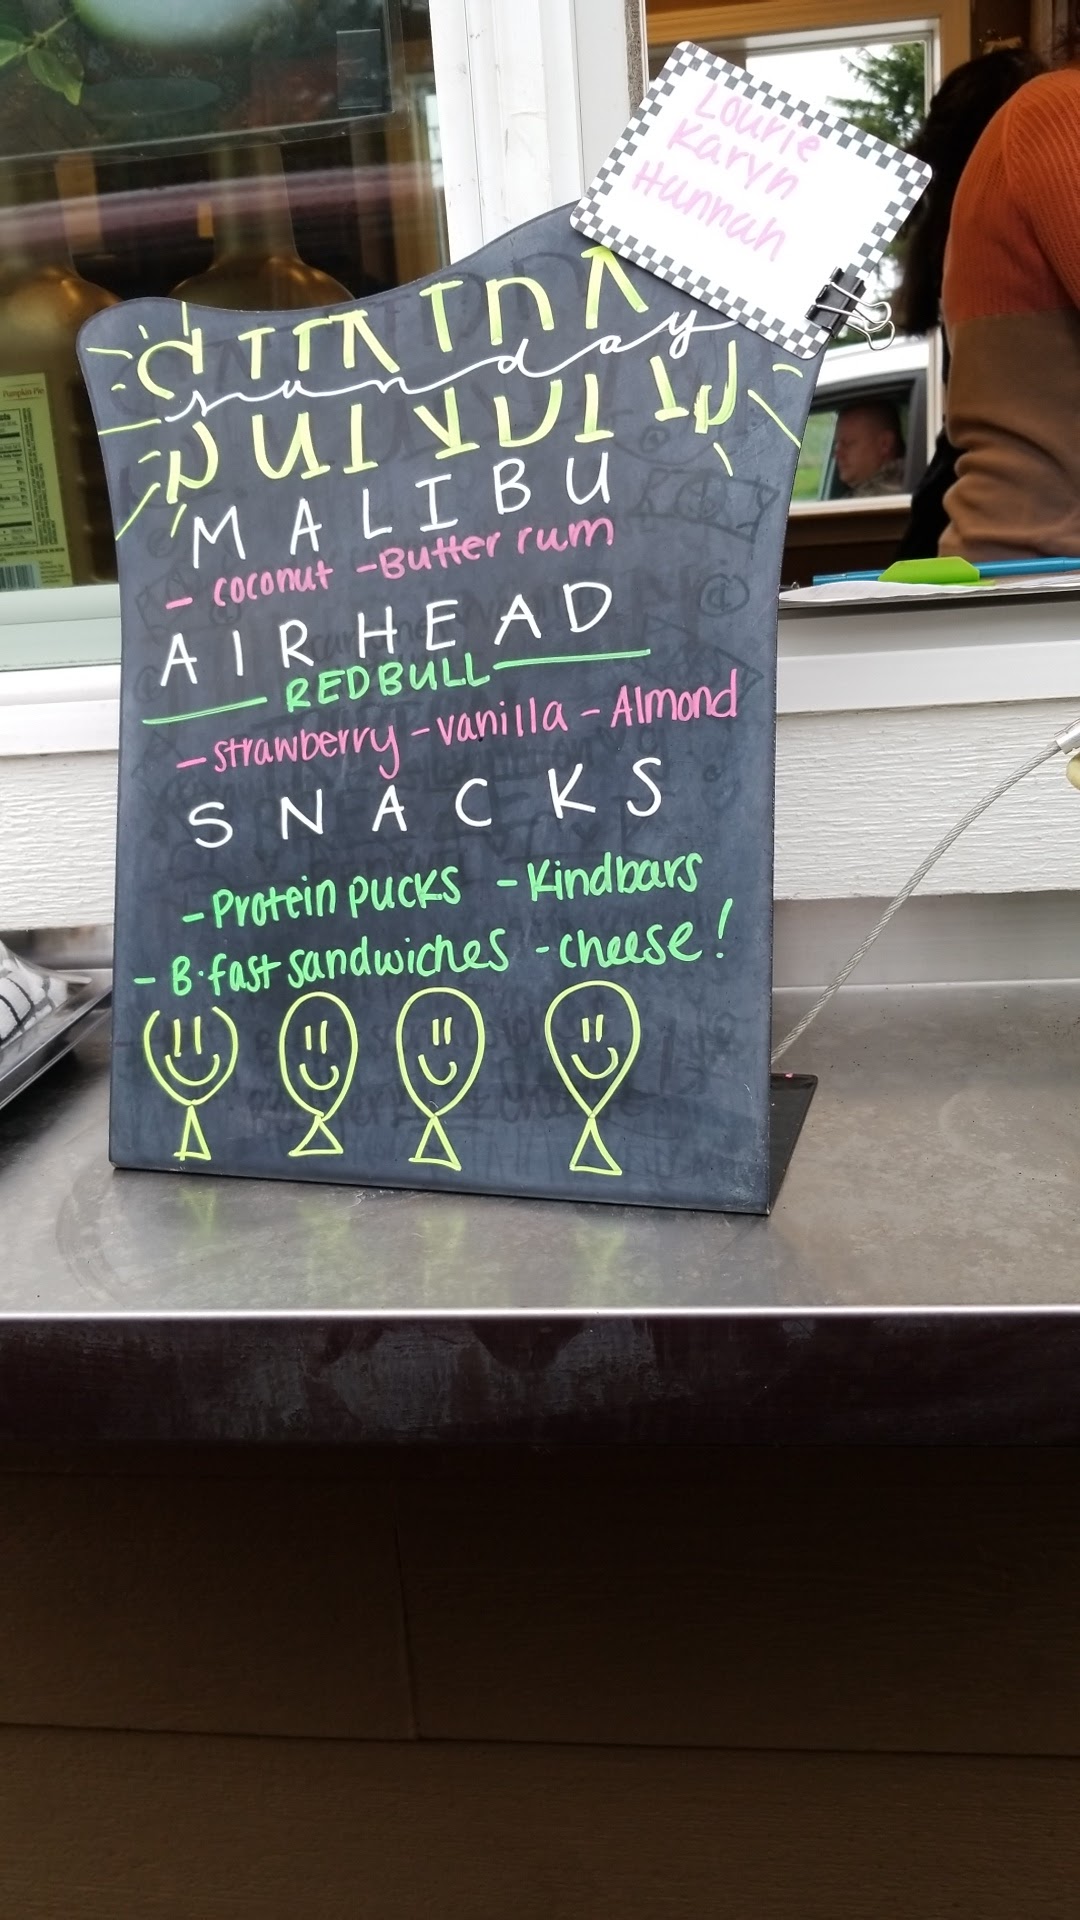 Lourie
Karyn
Hannah
sunday
MALIBU
- coconut - Butter rum
AIRHEAD
REDBULL
- strawberry - vanilla - Almond
SNACKS
- Protein pucks - Kindbars
- B·fast sandwiches - cheese!
Pumpkin Pie